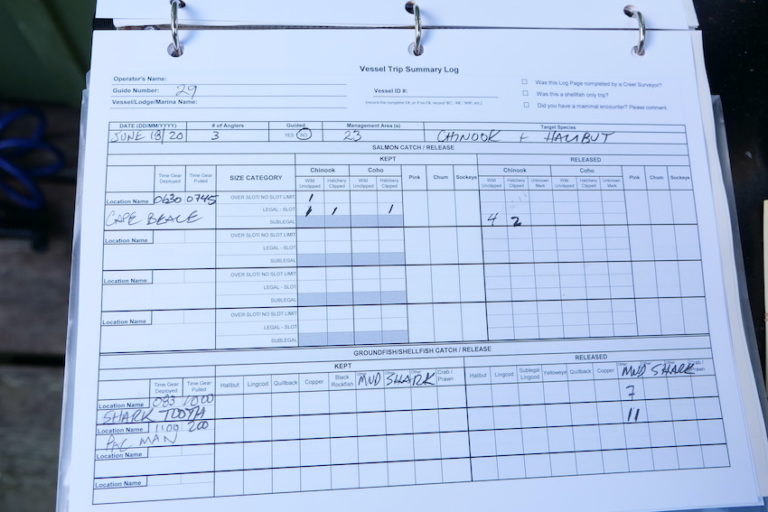 Vessel Trip Summary Log
Operator's Name:
Guide Number: 29
Vessel/Lodge/Marina Name:
Vessel ID #:
Was this Log Page completed by a Creel Surveyor?
Was this a shellfish only trip?
Did you have a mammal encounter? Please comment.
DATE (DD/MM/YYYY) # of Anglers Guided Management Area (s) Target Species
JUNE 18/20 3 YES NO 23 CHINOOK + HALIBUT
SALMON CATCH / RELEASE
KEPT RELEASED
Time Gear Deployed Time Gear Pulled SIZE CATEGORY Chinook Coho Pink Chum Sockeye Chinook Coho Pink Chum Sockeye
Wild Unclipped Hatchery Clipped Wild Unclipped Hatchery Clipped Wild Unclipped Hatchery Clipped Unknown Mark Wild Unclipped Hatchery Clipped Unknown Mark
Location Name 0630 0745 OVER SLOT/ NO SLOT LIMIT 1
CAPE BEALE LEGAL - SLOT 1 1 1
SUBLEGAL 4 2
Location Name OVER SLOT/ NO SLOT LIMIT
LEGAL - SLOT
SUBLEGAL
Location Name OVER SLOT/ NO SLOT LIMIT
LEGAL - SLOT
SUBLEGAL
Location Name OVER SLOT/ NO SLOT LIMIT
LEGAL - SLOT
SUBLEGAL
GROUNDFISH/SHELLFISH CATCH / RELEASE
KEPT RELEASED
Time Gear Deployed Time Gear Pulled Halibut Lingcod Quillback Copper Black Rockfish MUD SHARK Crab / Prawn Halibut Lingcod Sublegal Lingcod Yelloweye Quillback Copper MUD SHARK Crab / Prawn
Location Name 1000 7
SHARK TOOTH
Location Name 1100 200 11
PAC MAN
Location Name
Location Name